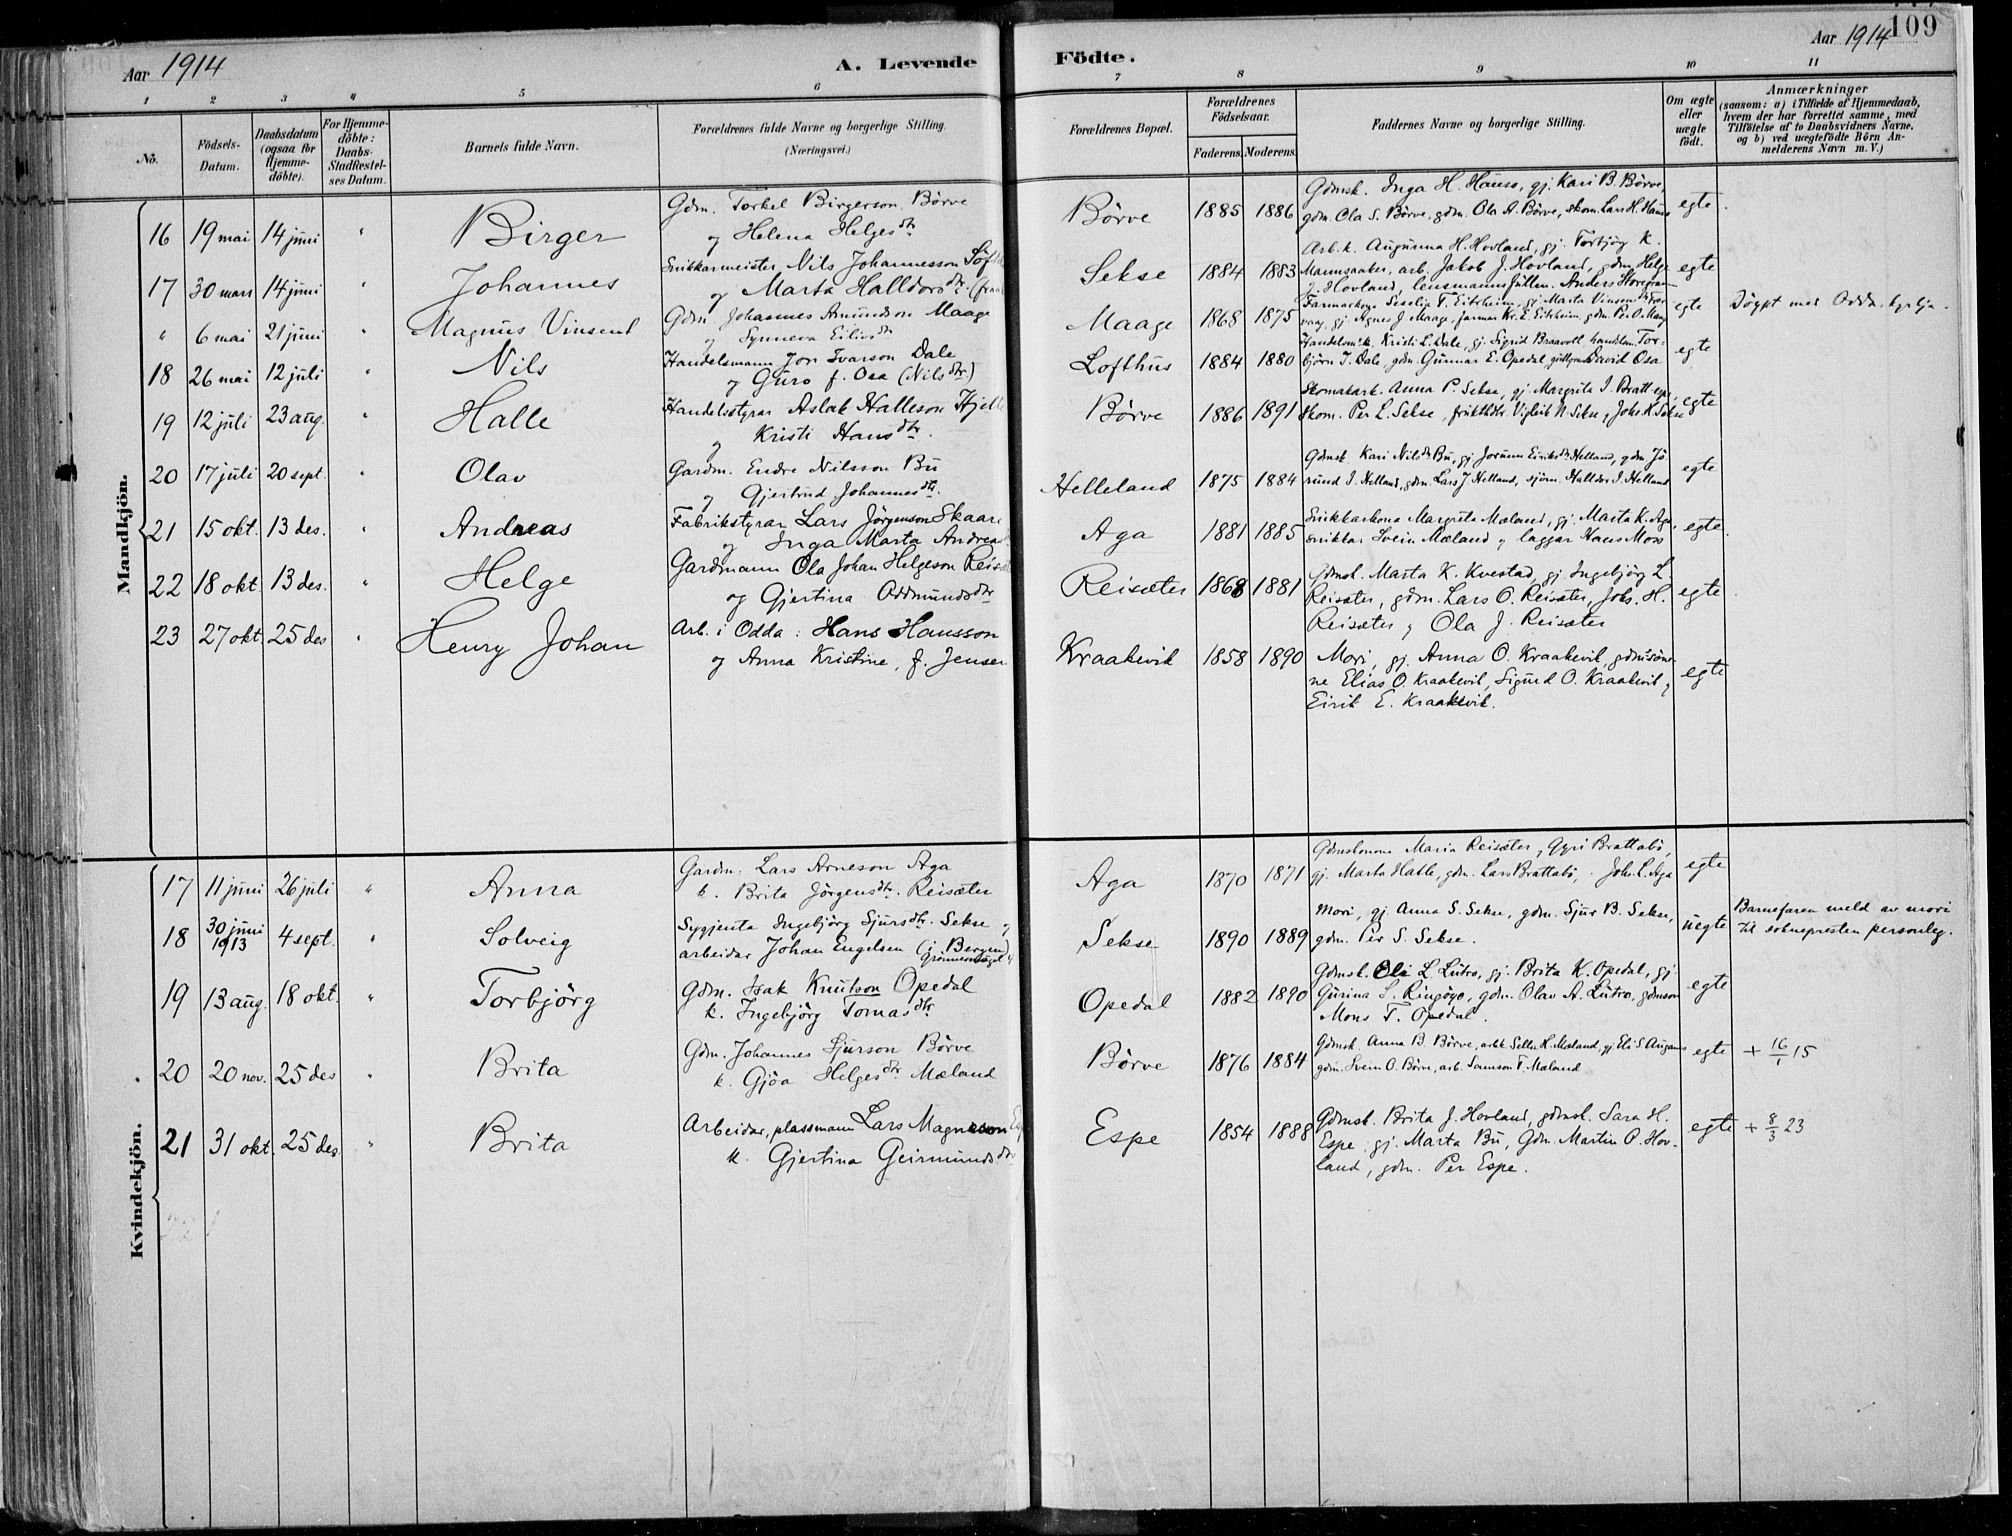 109
Aar 1914
A. Levende
Födte.
Aar 1914
1 2 3 4 5 6 7 8 9 10 11
No.
Födsels-
Datum.
Daabsdatum
(ogsaa for
Hjemme-
döbte).
For Hjemme-
döbte:
Daabs-
Stadfæstel-
ses Datum.
Barnets fulde Navn.
Forældrenes fulde Navne og borgerlige Stilling.
(Næringsvei.)
Forældrenes Bopæl.
Forældrenes
Födselsaar.
Faderens. Moderens.
Faddernes Navne og borgerlige Stilling.
Om ægte
eller
uægte
födt.
Anmærkninger
(saasom: a) i Tilfælde af Hjemmedaab,
hvem der har forrettet samme, med
Tilföielse af to Daabsvidners Navne,
og b) ved uægtefödte Börn An-
melderens Navn m. V.)
Mandkjön.
16 19 mai 14 juni " Birger
Gdm. Torkel Birgerson Børve
og Helena Helgesdtr
Børve 1885 1886
Gdmsk. Inga H. Hauso, gj. Kari B. Børve,
gdm. Ola S. Børve, gdm. Ola A. Børve, skom. Lars H. Hauso
egte.
17 30 mars 14 juni " Johannes
Snikkarmeister Nils Johannesson
og Marta Halldorsdtr.
Sekse 1884 1883
Arb.k. Augunna H. Hovland, gj. Torbjøg K.
Mannsaaker, arb. Jakob J. Hovland, gdm. Helge
J. Hovland, lensmannsfullm. Anders
egte
" 6 mai 21 juni " Magnus Vinsent
Gdm. Johannes Amundson Maage
og Synneva Eilivsdtr
Maage 1868 1875
Farmarkona Seselia T. Eitrheim, gj. Marta Vinsensdtr
gj. Agnes J. Maage, farmar Kr. E. Eitrheim, gdm. Per O. Maage
egte
Døypt med Odda-kyrkja.
18 26 mai 12 juli " Nils
Handelsmann Jon Ivarson Dale
og Guro f. Osa (Nilsdtr)
Lofthus 1884 1880
Handelsm.k. Kristi L. Dale, gj. Sigrid Braavoll, handelsm. Tor-
bjørn I. Dale, gdm. Gunnar E. Opedal, David Osa
egte
19 12 juli 23 aug. " Halle
Handelsstyrar Aslak Halleson
og Kristi Hansdtr.
Børve 1886 1891
Skomakark. Anna P. Sekse, gj. Margrita I. Bratt
skom. Per L. Sekse, Vigleik N. Sekse, Johs. K. Sekse
egte
20 17 juli 20 sept. " Olav
Gardm. Endre Nilsson Bu
og Gjertrud Johannesdtr.
Helleland 1875 1884
Gdmsk. Kari Nilsdtr Bu, gj. Jorunn Eiriksdtr Helland, gdm. Jø-
rund I. Helland, gdm. Lars J. Helland, sjøm. Halldor I. Helland
egte
21 15 okt. 13 des. " Andreas
Fabrikstyrar Lars Jørgenson Skaare
og Inga Marta Andrea
Aga 1881 1885
Snikkarkona Margrita Mæland, gj. Marta K. Aga,
snikkar Svein Mæland og laggar Hans Moss
egte
22 18 okt 13 des. " Helge
Gardmann Ola Johan Helgeson
og Gjertina Oddmundsdtr
Reisæter 1868 1881
Gdmsk. Marta K. Kvestad, gj. Ingebjørg L.
Reisæter, gdm. Lars O. Reisæter, Johs. H.
Reisæter og Ola J. Reisæter
egte
23 27 okt. 25 des " Henry Johan
Arb. i Odda: Hans Hansson
og Anna Kristine, f. Jensen
Kraakevik 1858 1890
Mori, gj. Anna O. Kraakevik, gdmssøne-
ne Elias O. Kraakevik, Sigurd O. Kraakevik og
Eirik E. Kraakevik.
egte
Kvindekjön.
17 11 juni 26 juli " Anna
Gardm. Lars Arneson Aga
k. Brita Jørgensdtr. Reisæter
Aga 1870 1871
Gdmskonone Maria Reisæter, Gyri Brattabø,
gj. Marta Hatle, gdm. Lars Brattabø, Joh. L. Aga
egte
18 30 juni 1913 4 sept. " Solveig
Sygjenta Ingebjørg Sjursdtr. Sekse og
arbeidar Johan Engelsen (i Bergen)
Sekse 1890 1889
Mori, gj. Anna S. Sekse, gdm. Sjur B. Sekse,
gdm. Per S. Sekse.
uegte
Barnefaren meld av mori
til soknepresten personleg.
19 13 aug. 18 okt. " Torbjörg
Gdm. Isak Knutson Opedal
k. Ingebjörg Tomasdtr
Opedal 1882 1890
Gdmsk. Oli L. Lutro, gj. Brita K. Opedal, gj.
Gurina S. Ringøyo, gdm. Olav A. Lutro, gdmson
Mons T. Opedal.
egte
20 20 nov. 25 des " Brita
Gdm. Johannes Sjurson Børve
k. Gjøa Helgesdtr Mæland
Børve 1876 1884
Gdmsk. Anna B. Børve, arbk. Sella H. Mæland, gj. Eli S.
gdm. Svein O. Børve, arb. Samson T. Mæland
egte + 16/1 15
21 31 okt. 25 des. " Brita
Arbeidar, plassmann Lars Magneson
k. Gjertina Geirmundsdtr
Espe 1854 1888
Gdmsk. Brita J. Hovland, gdmsk. Sara H.
Espe, gj. Marta Bu, Gdm. Martin O. Hov-
land, gdm. Per Espe.
egte + 8/3 23